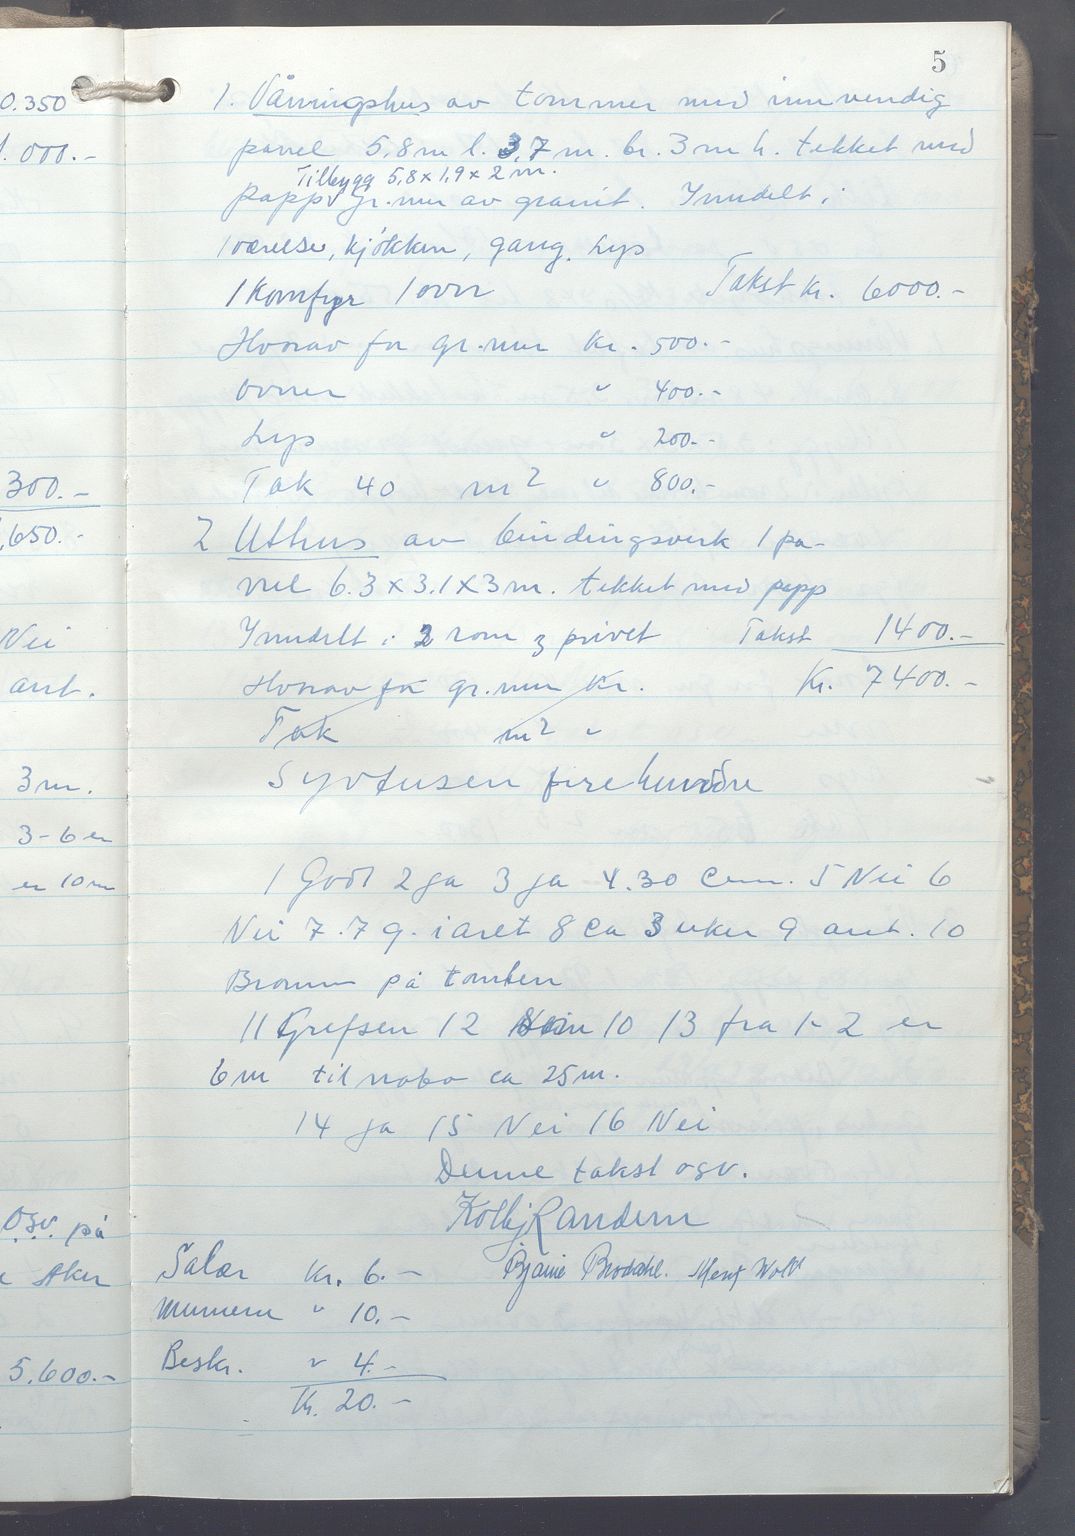 5
0.350
1. Våningshus av tømmer med innvendig
1.000.-
panel 5,8 m l. 3,7 m. br. 3 m h. tekket med
Tilbygg 5,8 x 1,9 x 2 m.
papp gr.mur av granit. Inndelt i
1 værelse, kjøkken, gang. Lys
1 Komfyr 1 ovn Takst kr. 6000.-
Hvorav for gr.mur kr. 500.-
ovner " 400.-
Lys " 200.-
300.-
Tak 40 m2 " 800.-
.650.-
2 Uthus av bindingsverk 1 pa-
nel 6.3 x 3.1 x 3 m. tekket med papp
Nei
Inndelt i 2 rom & privet Takst 1400.-
ant.
Hvorav for gr.mur kr. Kr. 7400.-
Tak m2 "
3 m.
Syvtusen firehundre
3-6 er
er 10 m
1 Godt 2 ja 3 ja 4. 30 cem. 5 Nei 6
Nei 7. 7 g. i året 8 ca 3 uker 9 ant. 10
Brønn på tomten
11 Grefsen 12 10 13 fra 1-2 er
6 m til nabo ca 25 m.
14 ja 15 Nei 16 Nei
Denne takst osv.
Osv. på
Kolbj Randem
Aker
Salær Kr. 6.- Bjarne Brodahl. Wold
" 10.-
5.600.-
Beskr. " 4.-
Kr. 20.-